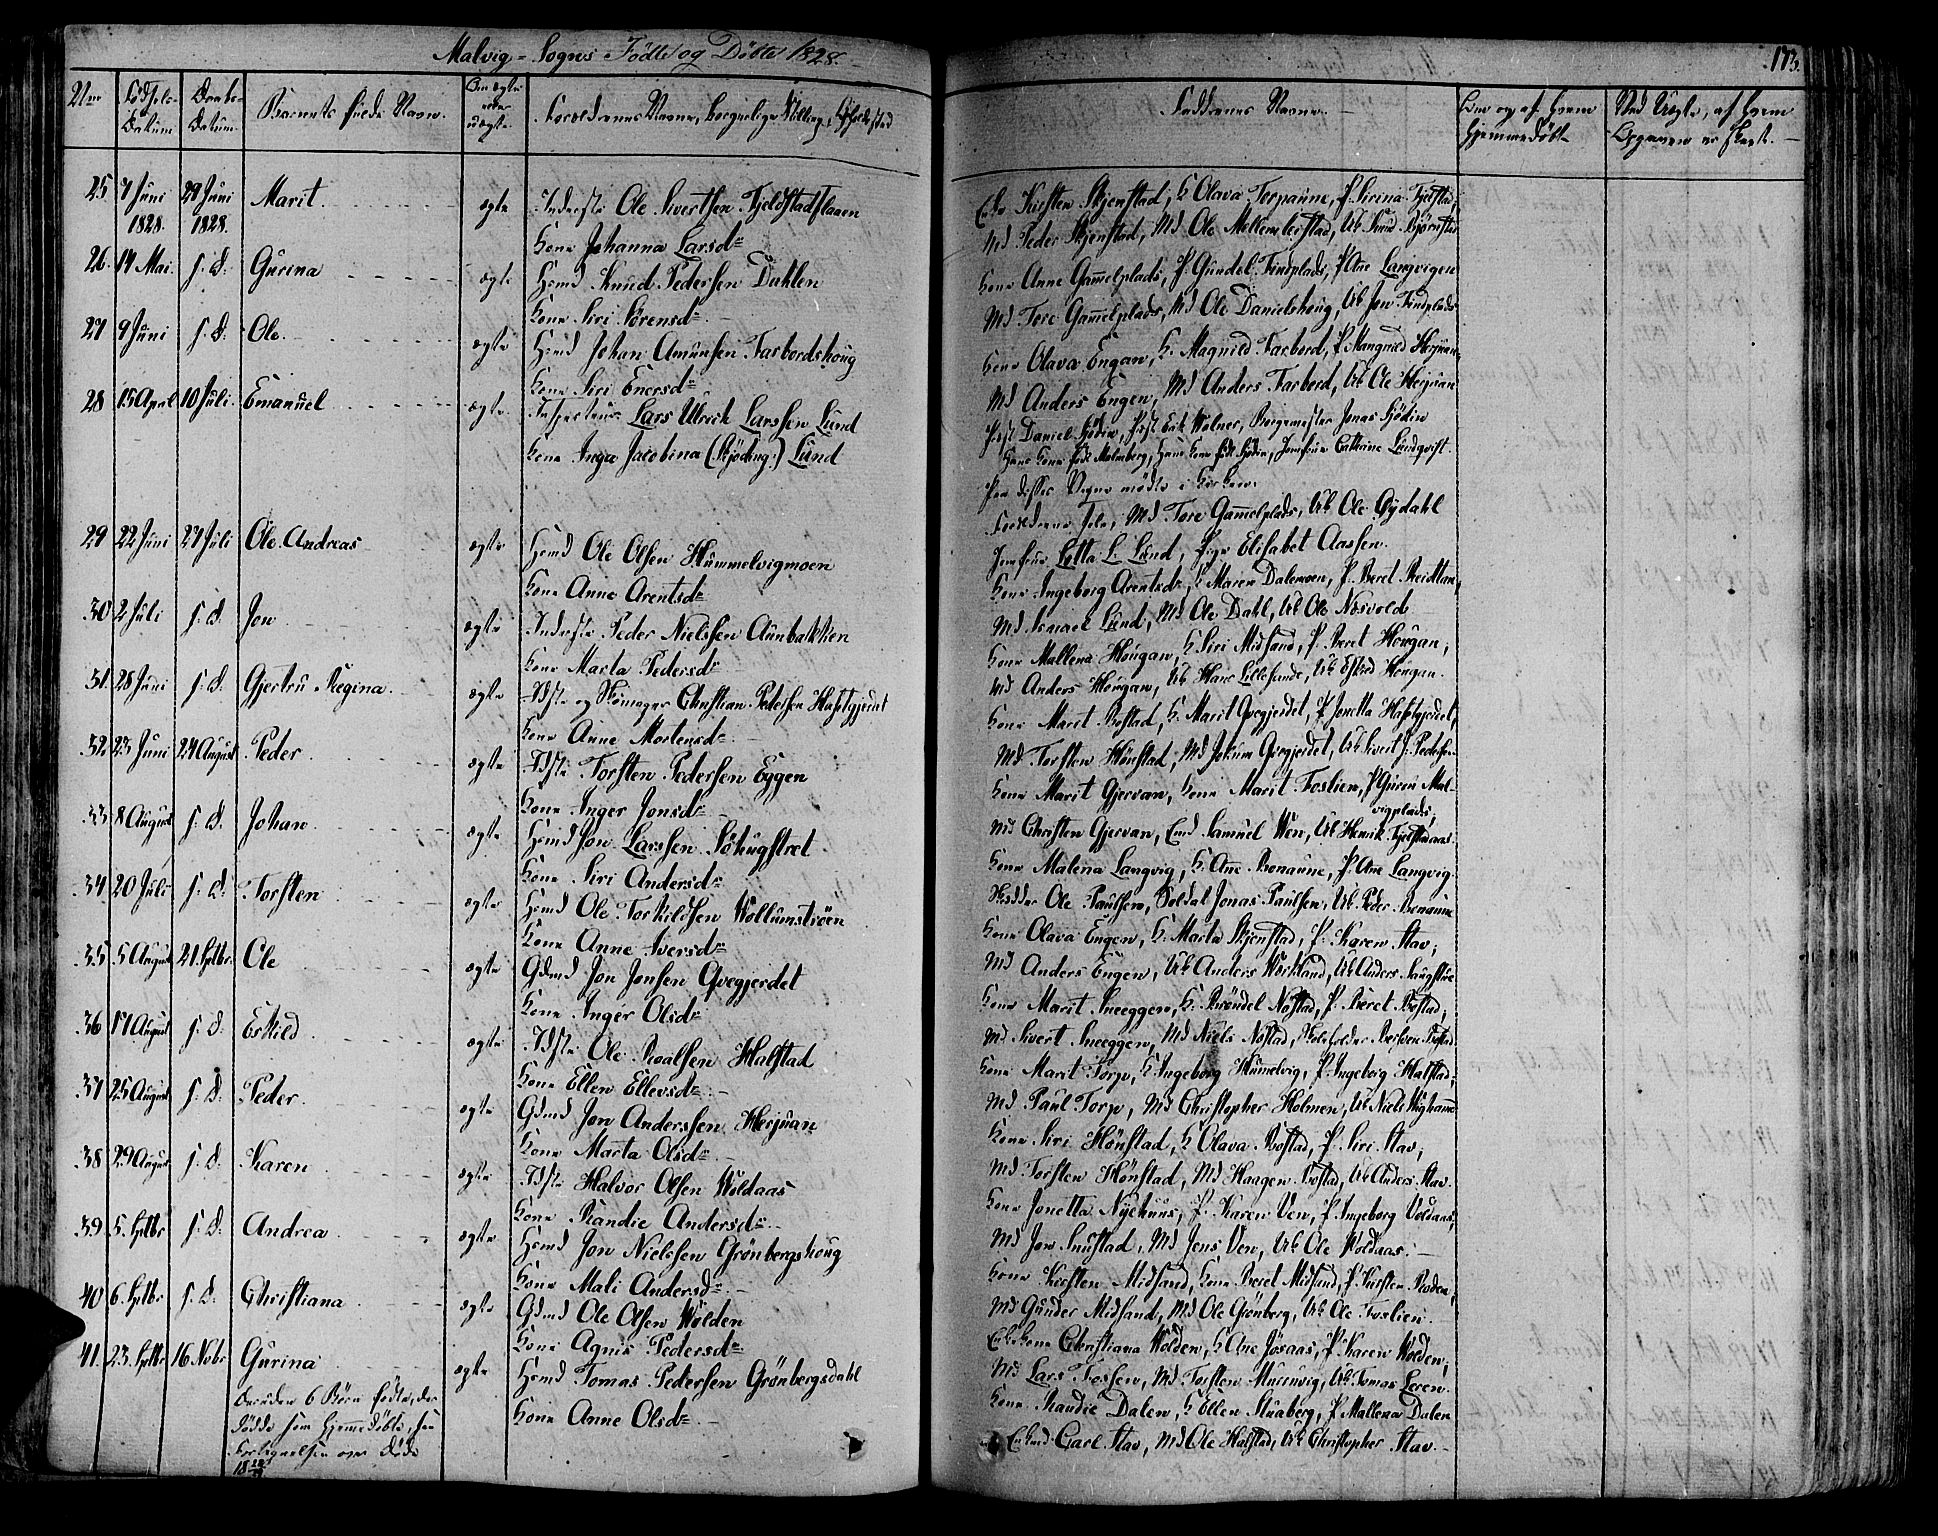 Malvig-Sogns Fødte og Døbte 1828.
173.
No
Fødsels-Datum
Daabs-Datum
Barnets fulde Navn.
Om ægte eller uægte.
Forældrenes Navne, borgerlige Stilling, Opholdsted
Faddernes Navne.
Om og af hvem hjemmedøbt.
25. 7 Juni 1828. 29 Juni 1828. Marit. ægte Inderste Ole Sivertsen Fjeldstadflaaen
Kone Johanna Larsdr
Kirsten Skjenstad, K Olava Torpaune, P. Sirina Fjelstad,
Md Peder Skjenstad, Md Ole Mellemleistad, Uk Knud Bjørnstad
26. 14 Mai. s. D. Gurina ægte Hmd Knud Pedersen Dahlen
Kone Siri Sørensd.
Kone Anne Gammelplads, P. Gundel Findplads, P Ane Langvigen
Md Tore Gammelplads, Md Ole Danielshoug, Uk Jon Findplads
27 9 Juni s. D. Ole. ægte Hmd Johan Amunsen Farbordshoug
Kone Siri Enersd.
Kone Olava Engan, K. Magnild Farbord, P. Mangnild Herjuan,
Md Anders Engen, Md Anders Farbord, Uk Ole Herjuan
28 15 April 10 Juli. Emanuel ægte. Lars Ulrich Larssen Lund
Kone Inga Jacobina (Skjøding.) Lund
Daniel Hødin, Erik Wolner, Borgemester Jonas Hødin
Hans Kone født Malmberg, Hans Kone født Hødin, Jomfrue Cathrine Lundqvist.
Forældrene selv, Md Tore Gammelplads, Uk Ole Gydahl
Jomfrue Letta L. Lund, Pige Elisabet Aassen.
29 22 Juni 27 Juli Ole Andreas ægte Hmd Ole Olsen Hummelvigmoen
Kone Anne Arentsd.
Kone Ingeborg Arentsdr, K Maren Dalemoen, P. Beret Reidtan,
Md Ismael Lund, Md Ole Dahl, Uk Ole Næsvold
30 2 Juli s. D. Jon ægte Inderste Peder Nielssen Aunbakken
Kone Marta Pedersd.
Kone Mallena Hougan, K Siri Midsand, P. Beret Hougan,
Md Anders Hougan, Uk Hans Lillesande, Uk Eskild Hougan.
31. 28 Juni s. D. Gjertru Regina. ægte Idste og Skomager Christian Pedersen Hasetgjerdet
Kone Anne Mortensd.
Kone Marit Bostad, K. Marit Qvegjerdet, P. Jonetta Hasetgjerdet,
Md Torsten Hønstad, Md Jokum Qvegjerdet, Uk Sivert J. Pedersen
32 23 Juni 24 August Peder ægte Idste Torsten Pedersen Eggen
Kone Inger Jonsd.
Kone Marit Gjervan, Kone Marit Foslien, P Guren Malvigplads,
Md Christen Gjervan, Emd Samuel Wen, Uk Henrik Fjelstadaas.
33 8 August s. D. Johan ægte Hmd Jon Larssen Søhugstret
Kone Siri Andersd.
Kone Malena Langvig, K Ane Bonaune, P. Ane Langvig.
Ole Paulsen, Soldat Jonas Paulsen, Uk Peder Bonaune
34 20 Juli s. D. Torsten ægte Hmd Ole Torkildsen Wollumstrøen
Kone Anne Iversd.
Kone Olava Engen, K. Marta Skjenstad, P. Karen Stav,
Md Anders Engen, Uk Anders Workland, Uk Anders Saugstue
35 5 August 21. Septbr. Ole ægte Gdmd Jon Jonsen Qvegjerdet
Kone Inger Olsd.
Kone Marit Sneeggen, K. Brøndel Nøstad, P. Beret Bostad,
Md Sivert Sneeggen, Md Niels Nøstad,
36 17 August s. D. Eskild ægte Idste Ole Roalsen Halstad
Kone Ellen Ellevsd.
Kone Marit Torp, K. Ingeborg Humelvig, P. Ingebrig Halstad,
Md Paul Torp, Md Christopher Holmen, Uk Niels
37 25 August s. D. Peder ægte Gdmd Jon Anderssen Herjuan
Kone Marta Olsd.
Kone Siri Hønstad, K Olava Bostad, P. Siri Stav,
Md Torsten Hønstad, Md Haagen Bostad, Uk Anders Stav
38 29 August s. D. Karen ægte Idste Halvor Olsen Woldaas
Kone Randie Andersd.
Kone Jonetta Nyehuus, P. Karen Ven, P. Ingeborg Voldaas,
Md Jon Snustad, Md Jens Ven, Uk Ole Woldaas.
39 5. Septbr s. D. Andrea ægte Hmd Jon Nielssen Grønbergshoug
Kone Mali Andersd.
Kone Kirsten Midsand, Kone Beret Midsand, P. Kirsten Roden,
Md Gunder Midsand, Md Ole Grønberg, Uk Ole Foslien.
40 6. Septbr s. D. Christiana ægte Gdmd Ole Olsen Wolden
Kone Agnis Pedersd.
Christiana Wolden, K Ane Jøsaas, P. Karen Wolden,
Md Lars Fossen, Md Torsten Muruvig, Uk Tomas Leren.
41. 23. Septbr 16 Nobr Gurina ægte Hmd Tomas Pedersen Grønbergsdahl
Kone Anne Olsd.
Kone Randie Dalen, K Ellen Stuaberg, P Mallena Dalen
Carl Stav, Md Ole Halstad, Uk Christopher Stav.
Desuden 6 Børn fødte, der
døde som hjemmedøbte, see
Fortegnelsen over Døde